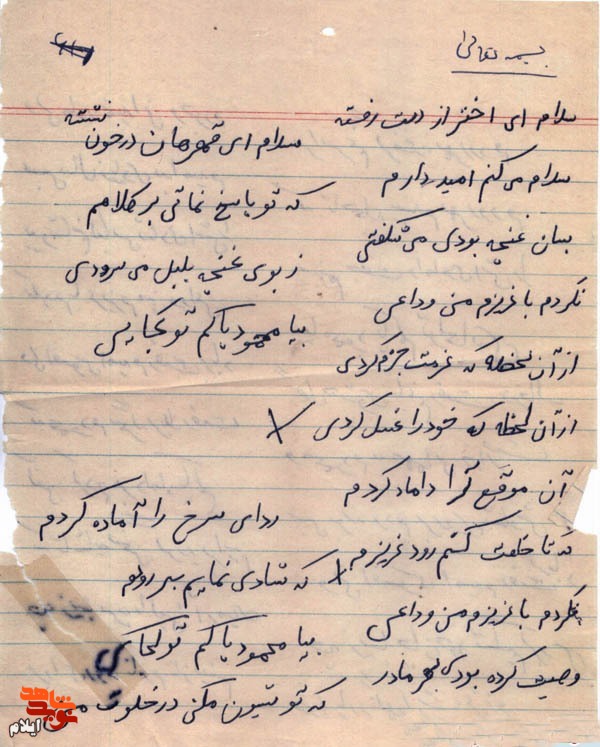 بسمه تعالی
سلام ای اختر از دست رفته
سلام ای قهرمان در خون نشسته
سلام می کنم امید دارم
که تو پاسخ نمائی بر کلامم
بسان غنچه بودی می شکفتی
ز بوی غنچه بلبل می سرودی
نکردم با عزیزم من وداعی
بیا محمود پاکم تو کجایی
از آن لحظه که عزمت جزم کردی
از آن لحظه که خود را غسل کردی
آن موقع ترا داماد کردم
ردای سرخ را آماده کردم
که تا خلعت کنم رود عزیزم
که شادی نمایم بهر رودم
نکردم با عزیزم من وداعی
بیا محمود پاکم تو کجای
وصیت کرده بودی بهر مادر
که تو شیون مکن در خلوت من
شاهد
نوید
ایلام